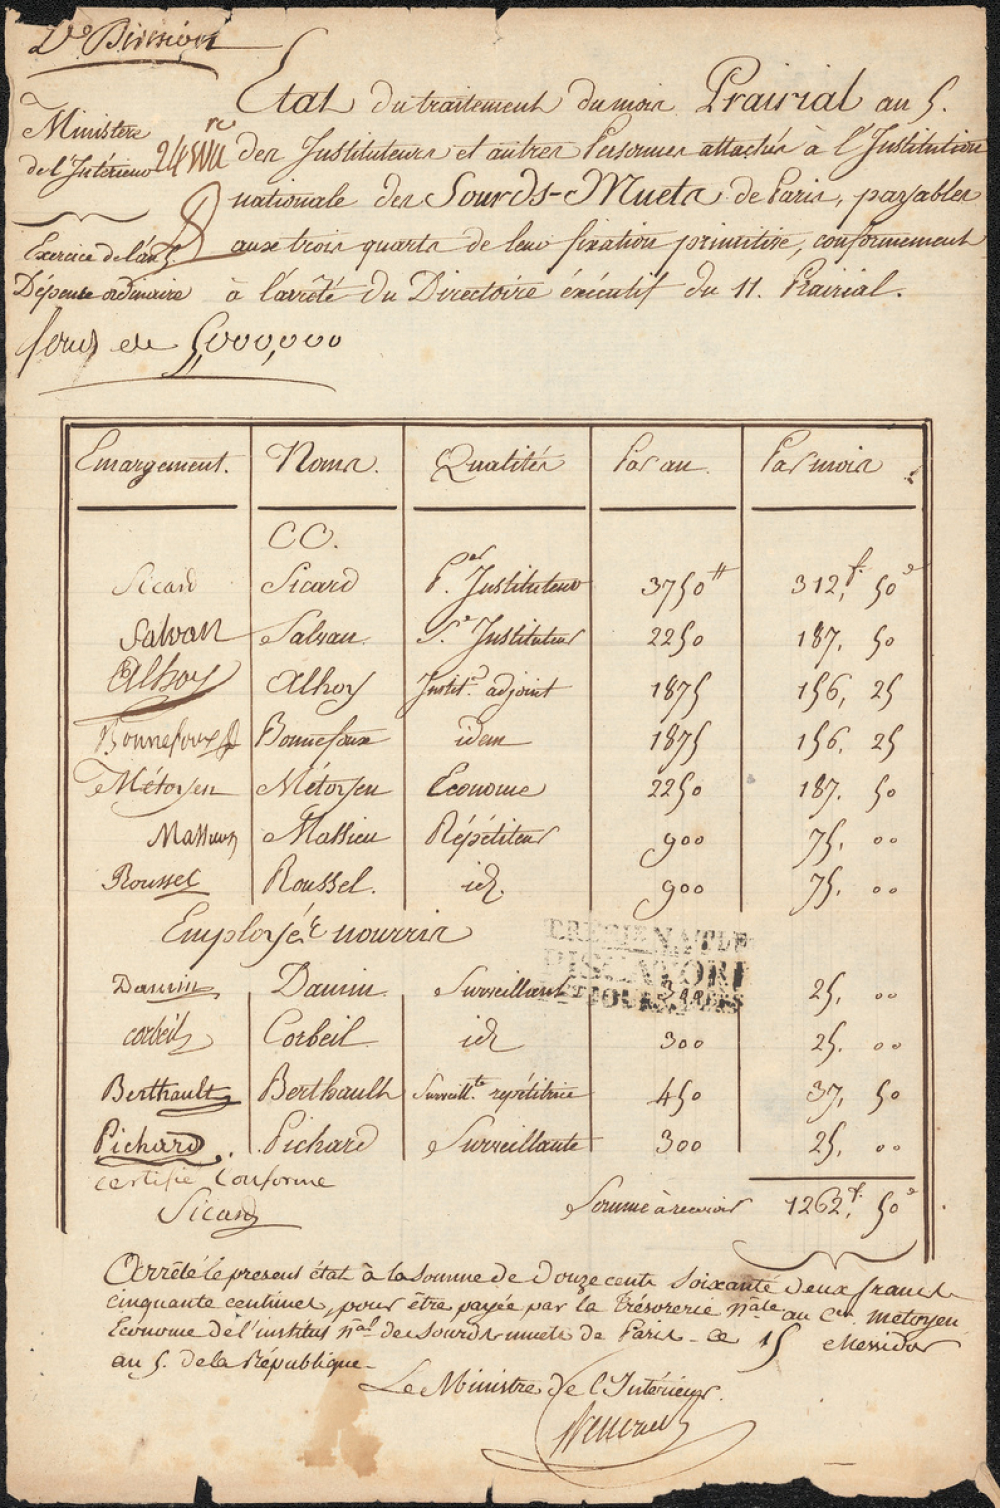 Vᵉ Division
Etat du traitement du mois Prairial an 5.
Ministère
de l'Intérieur
des Instituteurs et autres Personnes attachés à l'Institution
nationale des Sourds-Muets de Paris, payables
Exercice de l'an 5.
aux trois quarts de leur fixation primitive, conformement
Dépense ordinaire
à l'arrêté du Directoire éxécutif du 11. Prairial.
fond de 5,000,000
Emargement. Noms. Qualités Par an. Par mois
CC.
Sicard Sicard Pᵉʳ Instituteur 3750ᶧᶧ 312ᶠ, 50ᶜ
Salvan Salvan Sᵈ Instituteur 2250 187. 50
Alhoy Alhoy Instit.ʳ adjoint 1875 156, 25
Bonnefoux Bonnefoux idem 1875 156. 25
Métoyen Métoyen Econome 2250 187. 50
Massieu Massieu Répétiteur 900 75, 00
Roussel Roussel. id. 900 75. 00
Employés nourris
Damin Damin Surveillant 300 25, 00
Corbeil Corbeil id 300 25. 00
Berthault Berthault Surveill.ᵗᵉ repétitrice 450 37, 50
Pichard Pichard Surveillante 300 25, 00
certifié conforme
Sicard
Somme à recevoir 1262ᶠ, 50ᶜ
Arrêté le present état à la somme de Douze cents soixante deux francs
cinquante centimes, pour être payée par la trésorerie nᵃˡᵉ au Cᵉⁿ. metoyen
Econome de l'institut nᵃˡ des sourds-muets de Paris - ce 15 Messidor
an 5. de la République-
Le Ministre de l'Intérieur.
Benezech